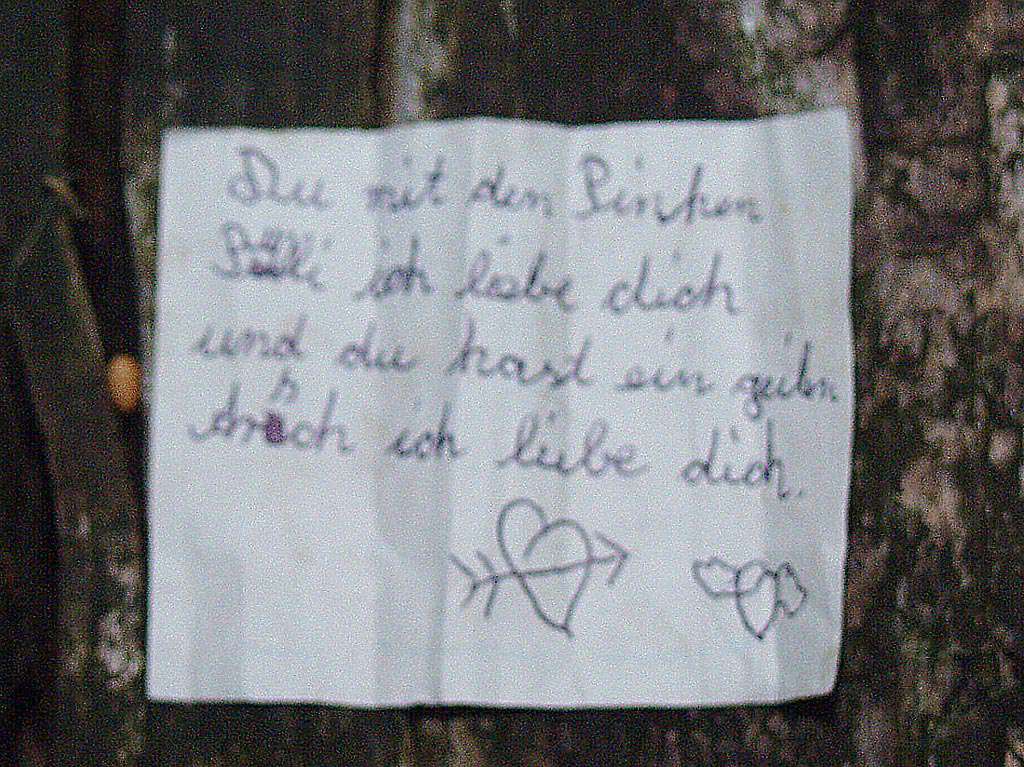 Du mit den Pinken
Pülli ich liebe dich
und du hast ein geilen
ich liebe dich.